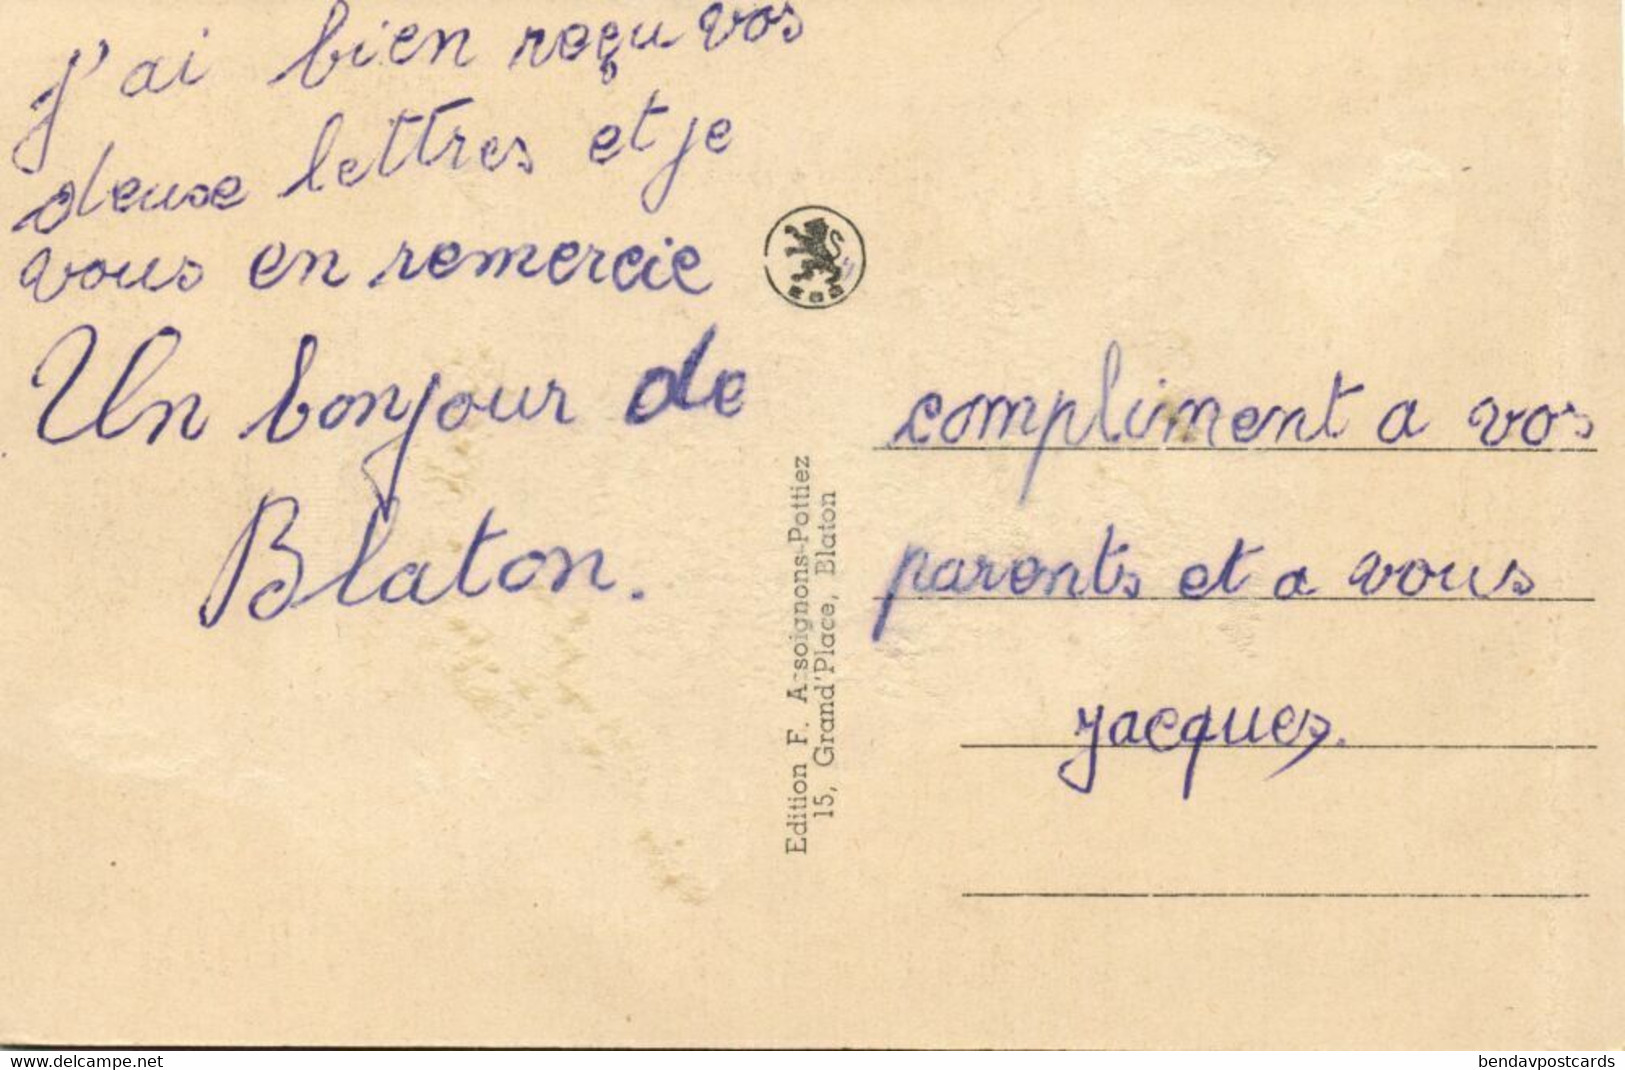 J'ai bien reçu vos
deuxe lettres et je
vous en remercie
Un bonjour de
Blaton.
Edition F. Assoignons-Pottiez
15, Grand'Place, Blaton
compliment a vos
parents et a vous
Jacques.
www.delcampe.net
bendavpostcards